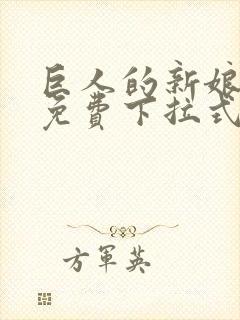 巨人的新娘
免费下拉式
方军英